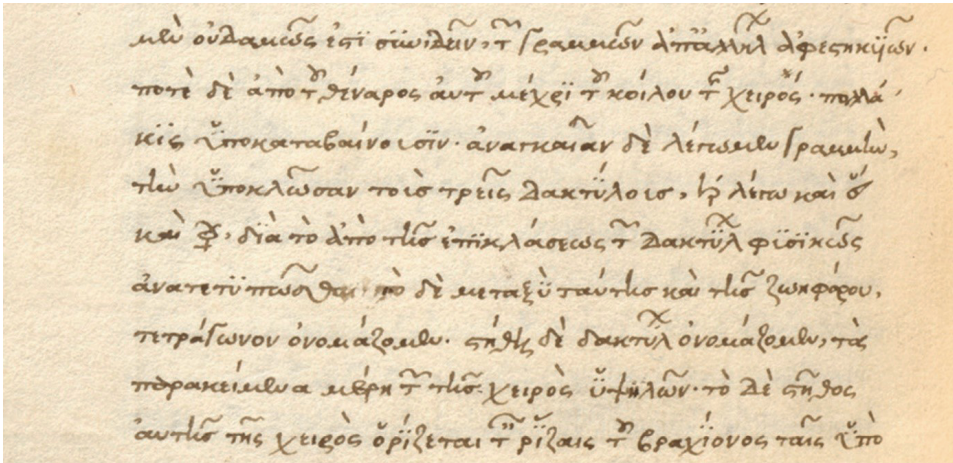 μὲν οὐδαμῶς ἐστι συνιδεῖν, τῶν γραμμῶν ἀπ' ἀλλήλων ἀφεστηκυιῶν.
ποτὲ δὲ ἀπὸ τοῦ θέναρος αὐτοῦ μέχρϊ τοῦ κοίλου τῆς χειρός· πολλά
κϊς ϋποκαταβαίνουσϊν· ἀναγκαίαν δὲ λέγομεν γραμμὴν,
τὴν ὑποκλῶσαν τοὶς τρεῖς δακτύλοις, λέγω καὶ
καὶ δϊὰ τὸ ἀπὸ τῆς ἐπϊκλάσεως τῶν δακτύλων φϋσϊκῶς
ἀνατετϋπῶσθαι τὸ δὲ μεταξὺ ταύτης καὶ τῆς ζωηφόρου,
τετράγωνον ὀνομάζομεν. στήθης δὲ δακτύλων ὀνομάζομεν, τὰς
παρακείμενα μέρη τῆς χειρὸς ὑψηλῶν· τὸ δὲ στῆθος
αὐτῆς τῆς χειρὸς ὁρίζεται ῥίζαις τοῦ βραχϊονος ταῖς ὑπὸ